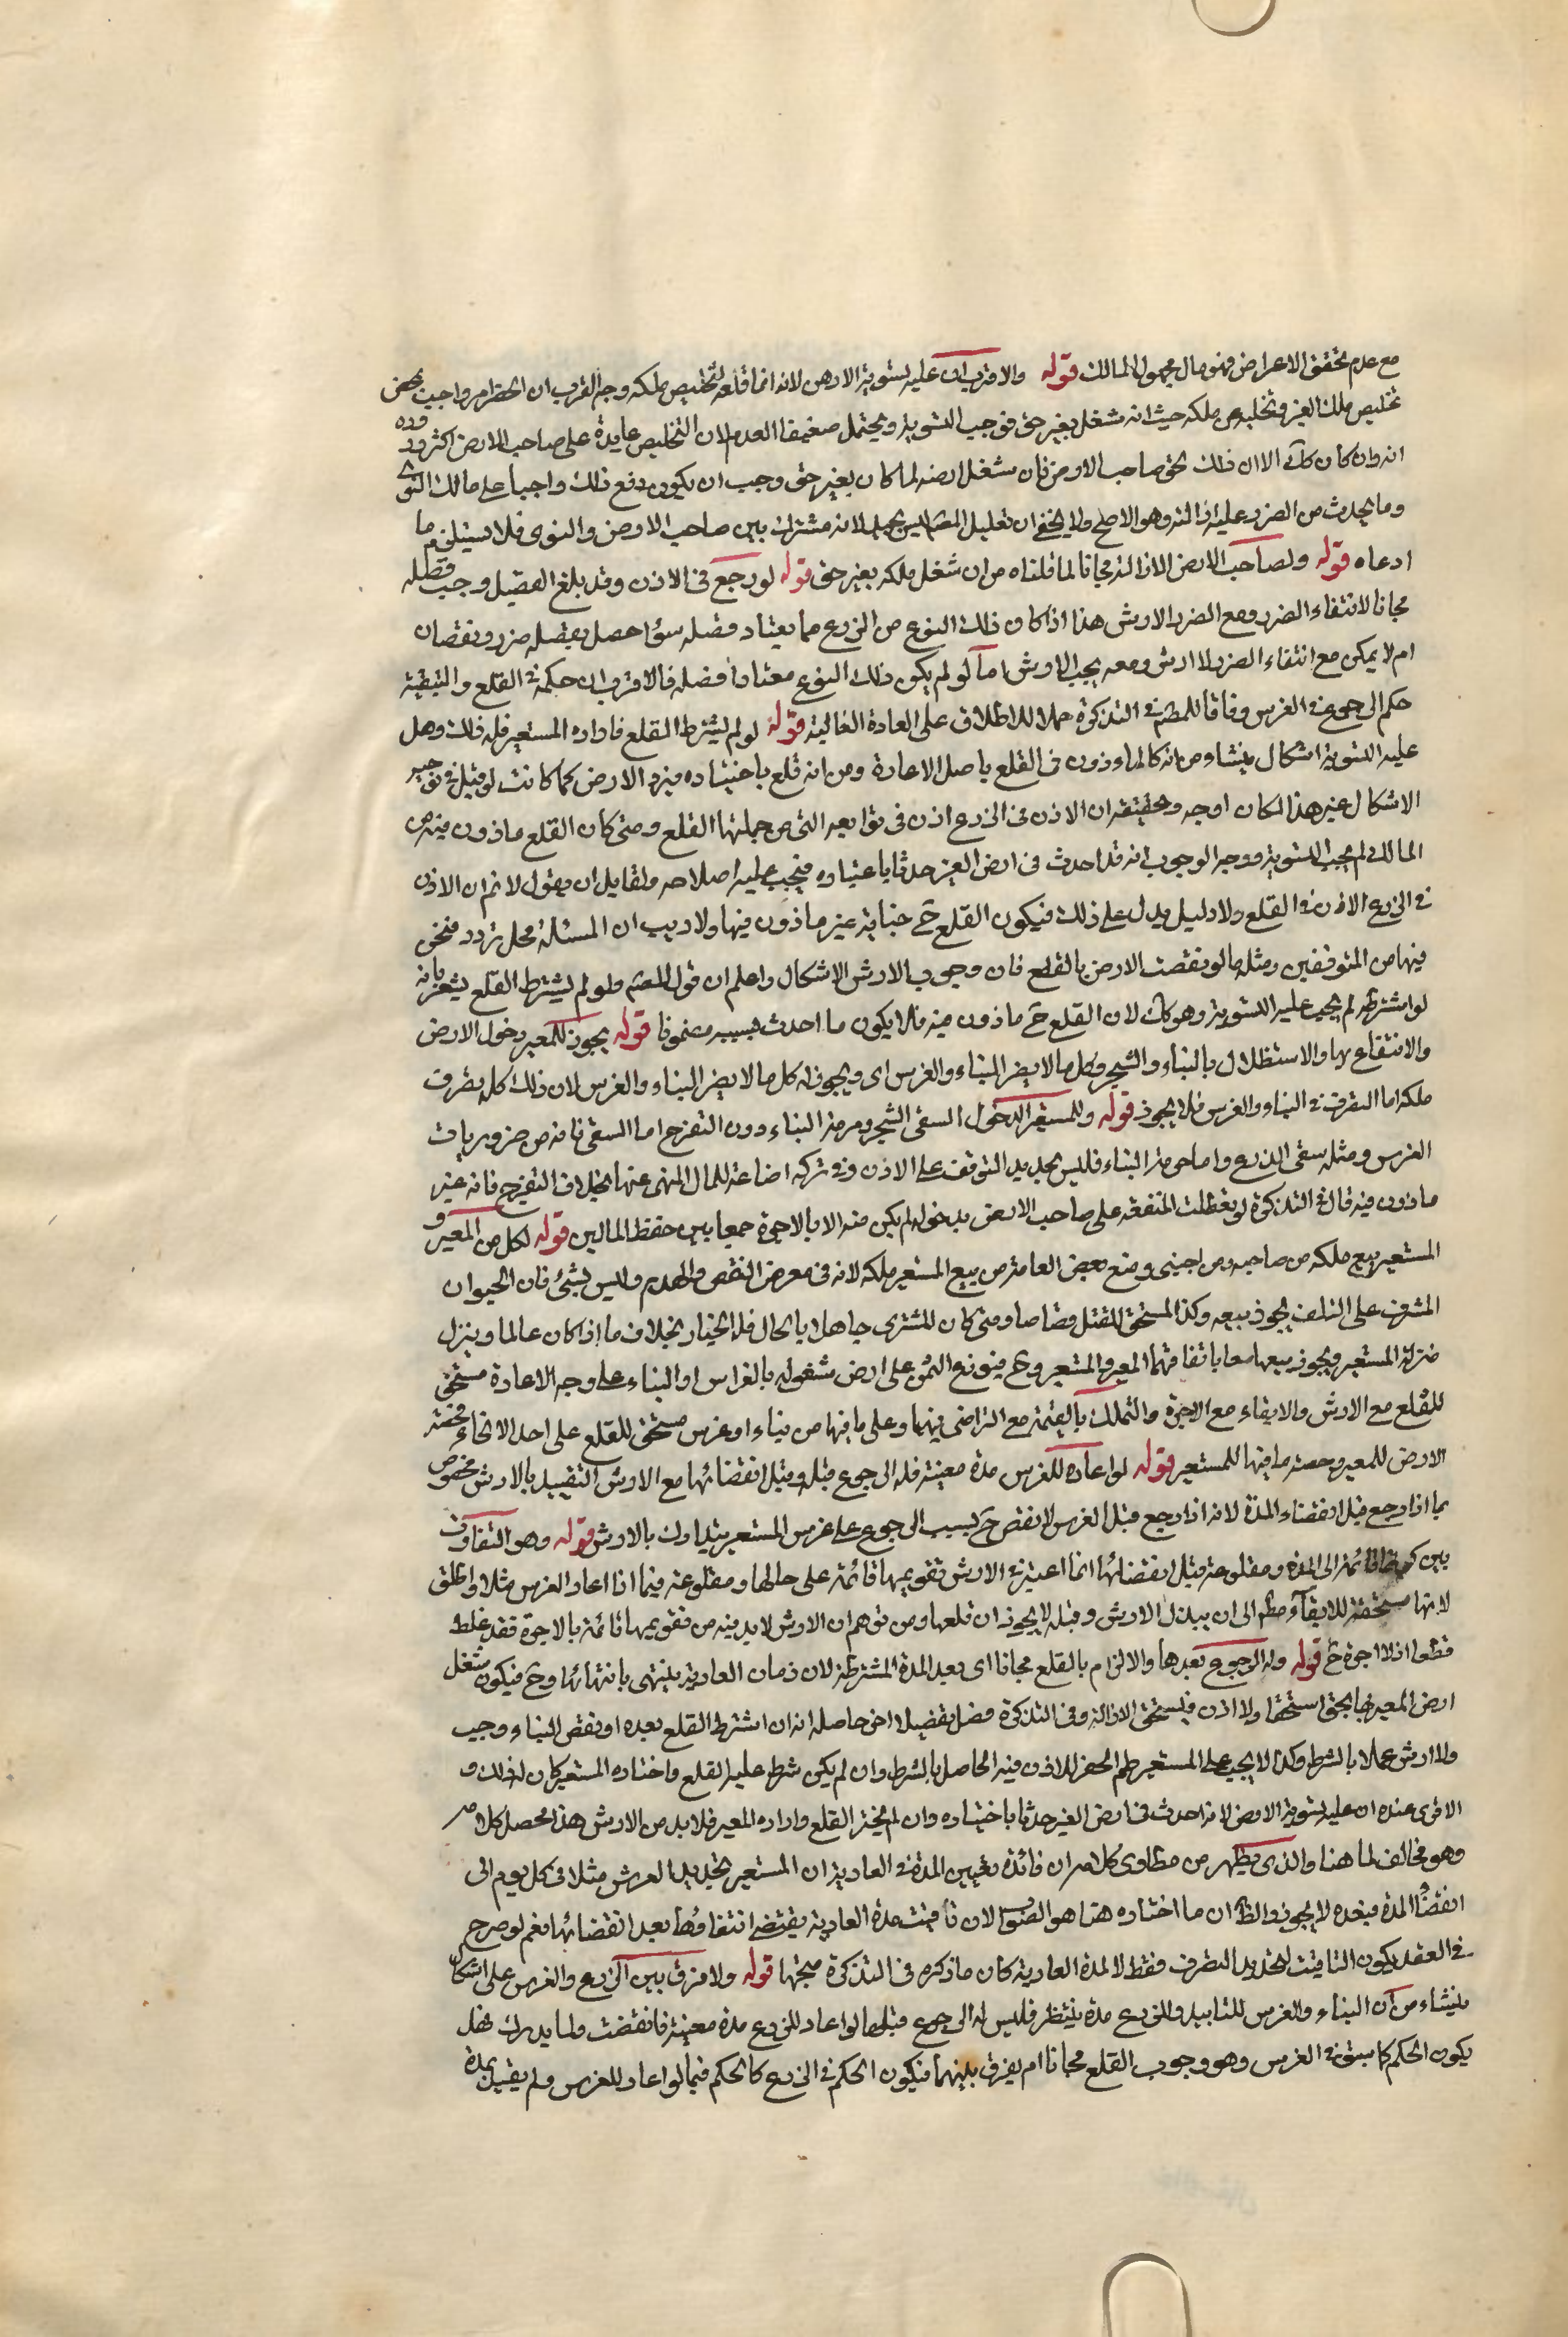 مع عدم تحقق الاعراض فهو مال مجهول المالك قوله والاقرب ان عليه تسوية الارض لانه انما قلعه لتخليص ملكه وجه القرب ان الحفر امر واجب بمحض
تخليص ملك الغير وتخليص ملكه حيث انه شغل بغير حق فوجب التسوية ويحتمل ضعيفا العدم لان التخليص عايدة على صاحب الارض اكثر ورده
انه وان كان كك الا ان ذلك بحق صاحب الارض فان شغل ارضه لما كان بغير حق وجب ان يكون دفع ذلك واجبا على مالك النوى
وما يحدث من الضرر عليه ازالته وهو الاصح ولا يخفى ان تعليل المصّ ليس بجيد لانه مشترك بين صاحب الارض والنوى فلا يستلزم ما
ادعاه قوله ولصاحب الارض الازالة مجانا لما قلناه من ان شغل ملكه بغير حق قوله لو رجع فى الاذن وقد بلغ الفصيل وجب فصله
مجانا لانتفاء الضرر ومع الضرر الارش هذا اذا كان ذلك النوع من الزرع مما يعتاد فصله سواء حصل بفصله ضرر ونقصان
ام لا يمكن مع انتفاء الضرر لا ارش ومعه يجب الارش اما لو لم يكن ذلك النوع معتادا فصله فالاقرب ان حكمه فى القلع والتبقية
حكم الرجوع فى الغرس وفاقا للمصّ فى التذكرة حملا للاطلاق على العادة الغالبة قوله لو لم يشترط القلع فاراده المستعير فله ذلك وهل
عليه التسوية اشكال ينشاء من انه كالماءذون فى القلع باصل الاعارة ومن انه قلع باختياره فيرد الارض كما كانت لو قيل فى توجيه
الاشكال غير هذا لكان اوجه وتحقيقه ان الاذن فى الزرع اذن فى توابعه التى من جملتها القلع ومتى كان القلع ماذون فيه من
المالك لم يجب التسوية ووجه الوجوب انه قد احدث فى ارض الغير حدثا باختياره فيجب عليه اصلاحه ولقايل ان يقول لا نم ان الاذن
فى الزرع الاذن فى القلع ولا دليل يدل على ذلك فيكون القلع ح جناية غير ماذون فيها ولا ريب ان المسئلة محل تردد فنحن
فيها من المتوقفين ومثله ما لو نقصت الارض بالقلع فان وجوب الارش الاشكال واعلم ان قول المصّ ولو لم يشترط القلع يشعر بانه
لو اشترط لم يجب عليه التسوية وهو كك لان القلع ح ماذون فيه فلا يكون ما احدث بسببه مضمونا قوله يجوز للمعير دخول الارض
والانتفاع بها والاستظلال بالبناء والشجر وكل ما لا يضر البناء والغرس اى ويجوز له كل ما لا يضر البناء والغرس لان ذلك كله تصرف
ملكه اما التصرف فى البناء والغرس فلا يجوز قوله وللمستعير الدخول لسقى الشجر ومرمة البناء دون التفرج اما السقى فانه من ضروريات
الغرس ومثله سقى الزرع واما مرمة البناء فليس ببعيد التوقف على الاذن وفى تركه اضاعة للمال المنهى عنها بخلاف التفرج فانه غير
ماذون فيه قال فى التذكرة لو تعطلت المنفعة على صاحب الارض بدخوله لم يكن منه الا بالاجرة جمعا بين حفظ المالين قوله لكل من المعير و
المستعير بيع ملكه من صاحبه ومن اجنبى ومنع بعض العامة من بيع المستعير ملكه لانه فى معرض النقص والهدم وليس بشئ فان الحيوان
المشرف على التلف يجوز بيعه وكذا المستحق للقتل قصاصا ومتى كان للمشترى جاهلا بالحال فله الخيار بخلاف ما اذا كان عالما وينزل
منزلة المستعير ويجوز بيعهما معا باتفاقهما المعير والمستعير وح فيوزع الثمن على ارض مشغولة بالغراس او البناء على وجه الاعارة مستحق
للقلع مع الارش والابقاء مع الاجرة والتملك بالقيمة مع التراضى فيهما وعلى ما فيها من بناء او غرس مستحق للقلع على احد الانحاء فحصة
الارض للمعير وحصة ما فيها للمستعير قوله لو اعاره للغرس مدة معينة فله الرجوع قبله وقبل انقضائها مع الارش التقييد بالارش مخصوص
بما اذا رجع قبل انقضاء المدة لانه اذا رجع قبل الغرس لا نقص ح بسبب الرجوع على غرس المستعير يتدارك بالارش قوله وهو التفاوت
بين كونها قائمة الى المدة ومقلوعة قبل انقضائها انما اعتبر فى الارش تقويمها قائمة على حالها ومقلوعة فيما اذا اعار الغرس مثلا واطلق
لانها مستحقة للابقاء مطم الى ان يبذل الارش وقبله لا يجوز ان قلعها ومن توهم ان الارش لا بد فيه من تقويمها قائمة بالاجرة فقد غلط
قطعا اذ لا اجرة ح قوله وله الرجوع بعدها والالزام بالقلع مجانا اى بعد المدة المشترطة لان زمان العارية ينتهى بانتهائها وح فيكون شغل
ارض المعير بها بحق استحقها ولا اذن فيستحق الازالة وفى التذكرة فصل تفصيلا اخر حاصله انه ان اشترط القلع بعده او نقض البناء وجب
ولا ارش عملا بالشرط وكذا لا يجب على المستعير طم الحفر للاذن فيه الحاصل بالشرط وان لم يكن شرط عليه القلع واختاره المستعير كان له ذلك و
الاقرى عنده ان عليه تسوية الارض لانه احدث فى ارض الغير حدثا باختياره وان لم يختر القلع واراده المعير فلا بد من الارش هذا محصل كلامه
وهو مخالف لما هنا والذى يظهر من مطاوى كلامه ان فائدة تعيين المدة فى العارية ان المستعير تجديد الغرس مثلا فى كل يوم الى
انقضاء المدة فبعده لا يجوز والظ ان ما اختاره هنا هو الصواب لان تاقيت مدة العارية يقتضى انتفاؤها بعد انقضائها نعم لو صرح
فى العقد بكون التاقيت لتحديد التصرف فقط لا لمدة العارية كان ما ذكره فى التذكرة متجها قوله ولا فرق بين الزرع والغرس على اشكال
ينشاء من ان البناء والغرس للتابيد وللزرع مدة ينتظر فليس له الرجوع قبلها لو اعار للزرع مدة معينة فانقضت ولما يدرك فهل
يكون الحكم كما سبق فى الغرس وهو وجوب القلع مجانا ام يفرق بينهما فيكون الحكم فى الزرع كالحكم فيما لو اعار للغرس ولم يقيد بمدة